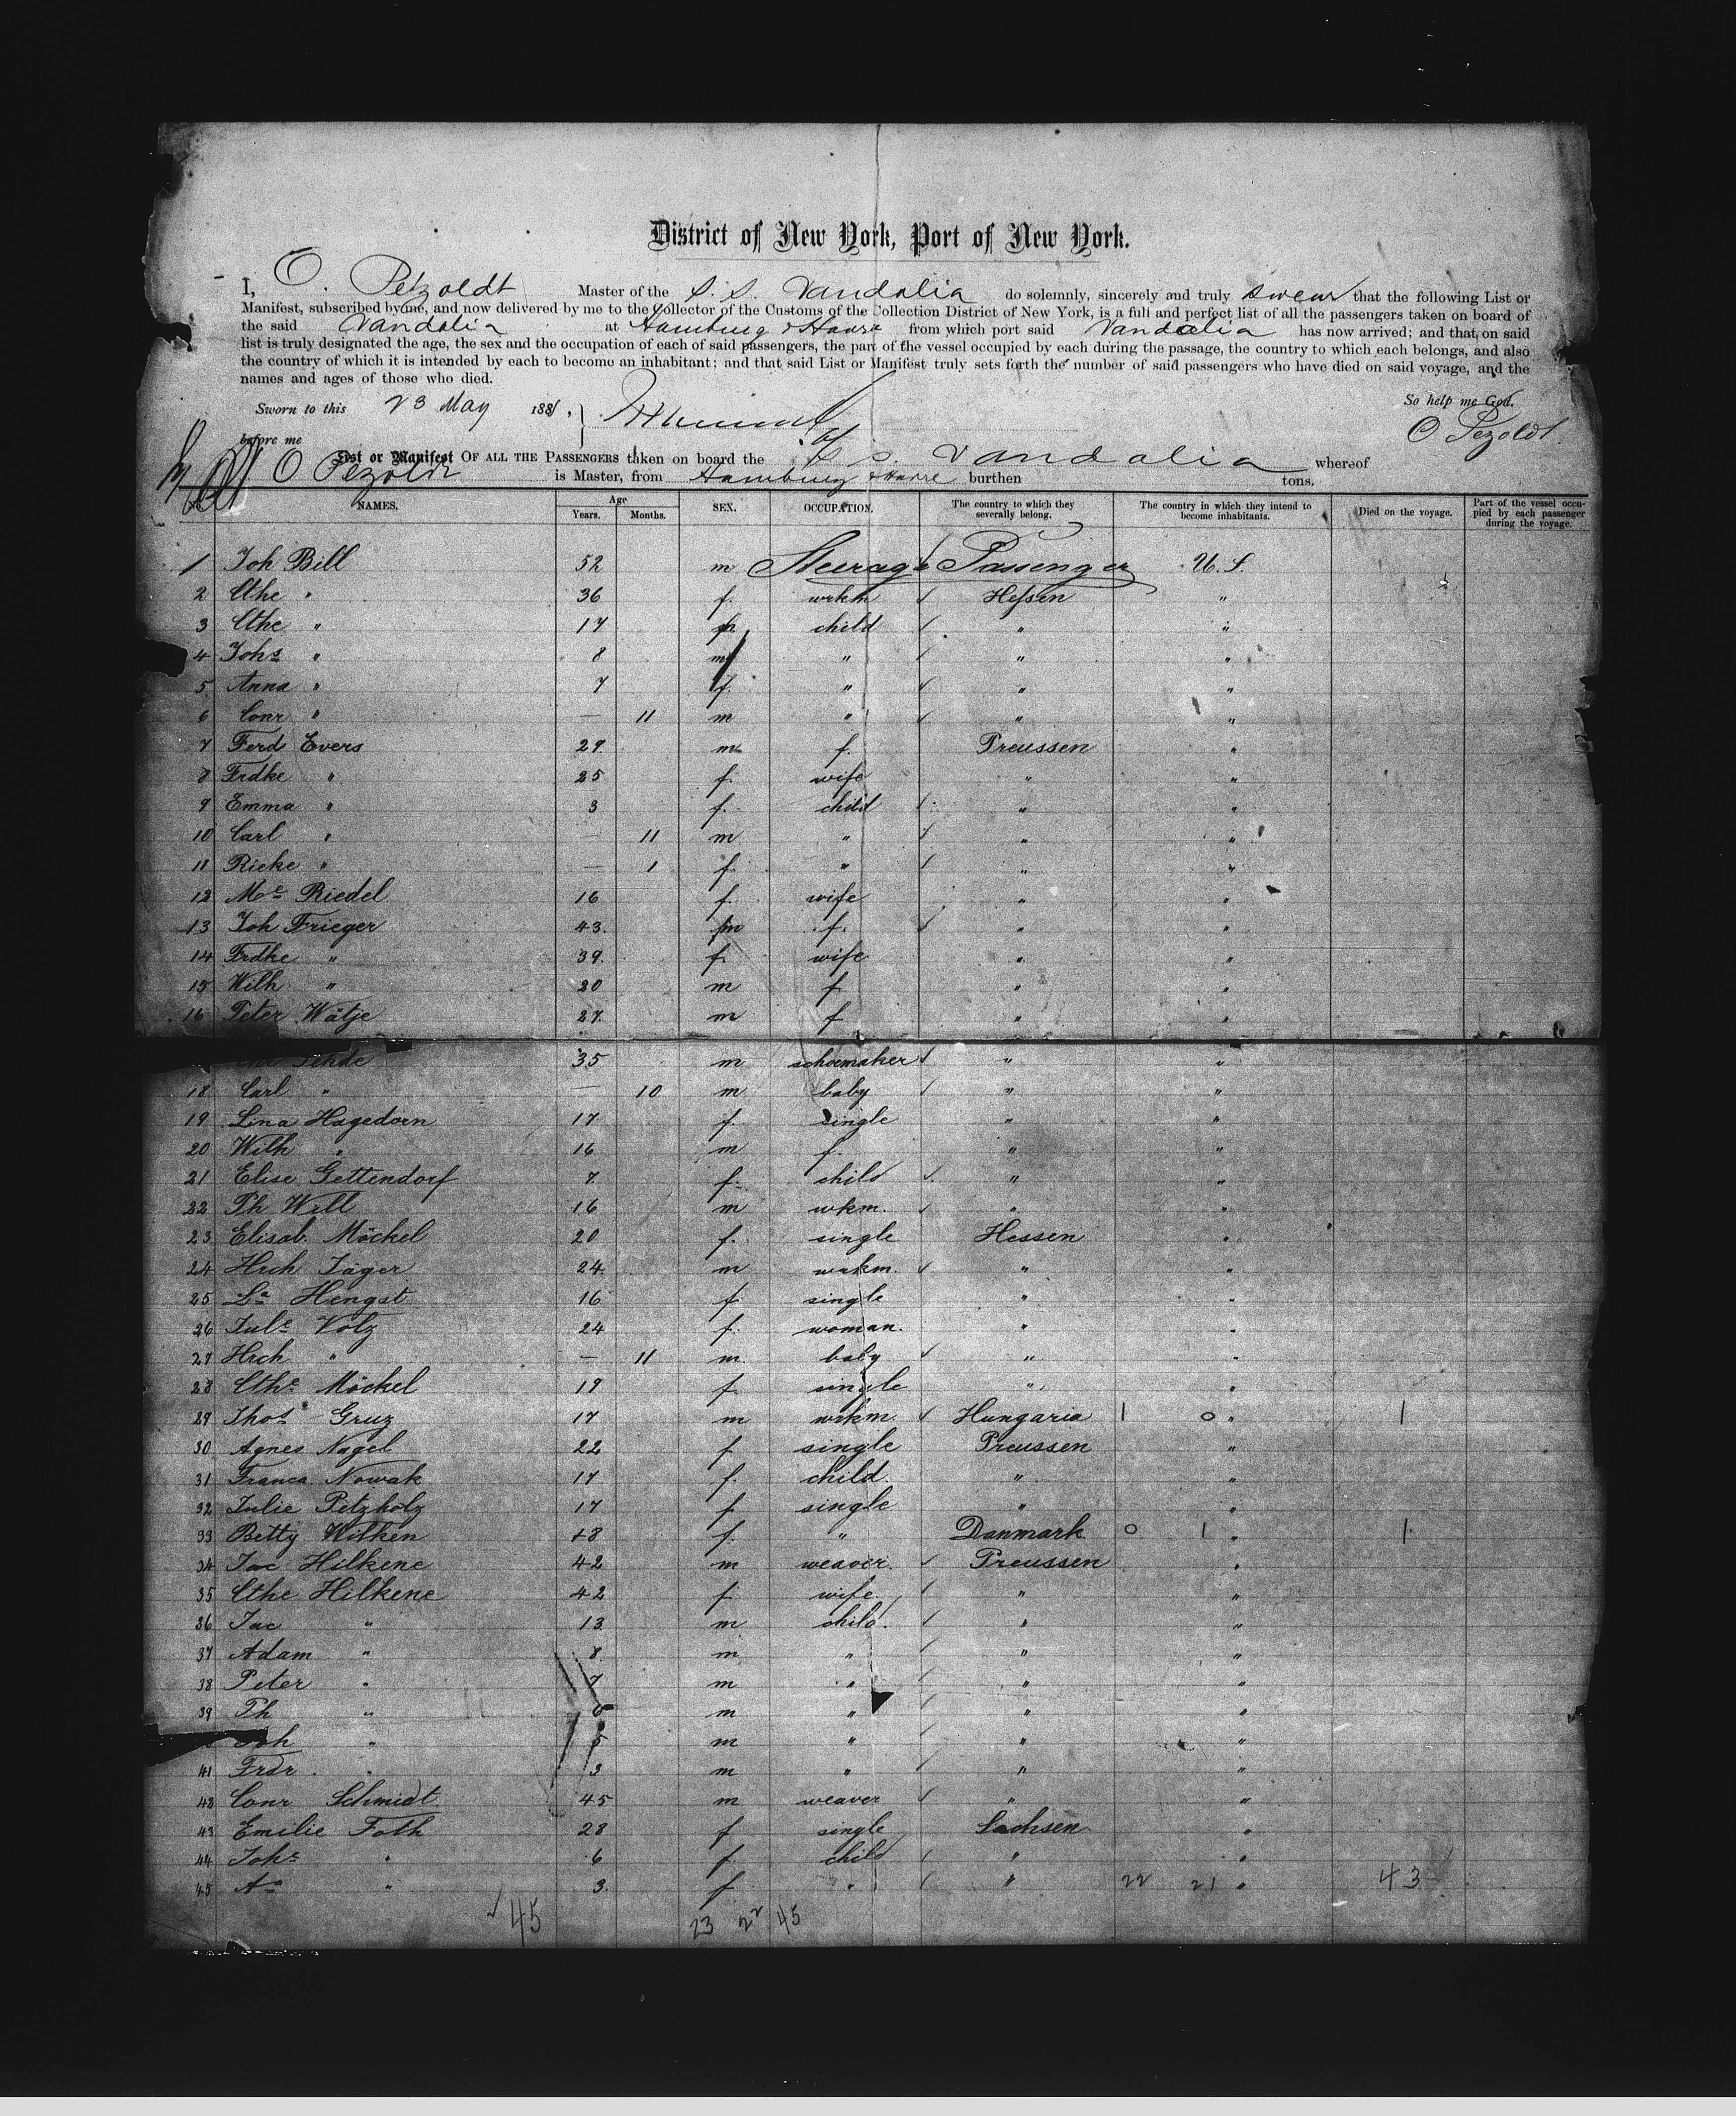 District of New York, Port of New York.
I, O. Petzoldt Master of the S. S. Vandalia do solemnly, sincerely and truly swear that the following List or
Manifest, subscribed by me, and now delivered by me to the Collector of the Customs of the Collection District of New York, is a full and perfect list of all the passengers taken on board of
the said Vandalia at Hamburg & Havre from which port said Vandalia has now arrived; and that on said
list is truly designated the age, the sex and the occupation of each of said passengers, the part of the vessel occupied by each during the passage, the country to which each belongs, and also
the country of which it is intended by each to become an inhabitant; and that said List or Manifest truly sets forth the number of said passengers who have died on said voyage, and the
names and ages of those who died.
Sworn to this 23 May 1881, So help me God.
before me O Pezoldt
List or Manifest OF ALL THE PASSENGERS taken on board the S. S. Vandalia whereof
O Pezoldt is Master, from Hamburg & Havre burthen tons.
NAMES. Age Years. Months. SEX. OCCUPATION. The country to which they severally belong. The country in which they intend to become inhabitants. Died on the voyage. Part of the vessel occupied by each passenger during the voyage.
1 Joh Bill 52 m Steerage Passenger U. S.
2 Cthe " 36 f. wrkm Hessen "
3 Cthe " 17 child " "
4 Johs " 8 m " " "
5 Anna " 7 f. " " "
6 Conr " — 11 m " " "
7 Ferd Evers 29 m f. Preussen "
8 Frdke " 25 f. wife " "
9 Emma " 3 f. child " "
10 Carl " — 11 m " " "
11 Rieke " — 1 f. " " "
12 Me Riedel 16 f. wife " "
13 Joh Frieger 43. m f. " "
14 Frdke " 39. f. wife " "
15 Wilh " 20 m f " "
16 Peter Wätje 27. m f " "
35 m schoemaker " "
18 Carl " — 10 m baby " "
19 Lina Hagedorn 17 f. single " "
20 Wilh " 16 m f. " "
21 Elise Gettendorf 7 f. child " "
22 Ph Will 16 m wkm. " "
23 Elisab. Möckel 20 f. single Hessen "
24 Hrch Jäger 24. m wrkm. " "
25 La Hengst 16 f. single " "
26 Jule Volz 24 f. woman. " "
27 Hrch " — 11 m. baby " "
28 Cthe Möckel 19 f. single " "
29 Thos Gruz 17 m wrkm. Hungaria 1 0 " 1
30 Agnes Nagel 22 f single Preussen "
31 Franca Nowak 17 f. child. " "
32 Julie Petzholz 17 f single " "
33 Betty Wilken 48 f. " Danmark 0 1 " 1
34 Jac Hilkene 42 m weaver. Preussen "
35 Cthe Hilkene 42 f wife. " "
36 Jac " 13 m child. " "
37 Adam " 8. m " " "
38 Peter " 7 m " " "
39 Ph " 6 m " " "
Joh " 5 m " " "
41 Frdr. " 3 m " " "
42 Conr Schmidt 45 m weaver " "
43 Emilie Foth 28 f single Sachsen "
44 Johs " 6 f. child " "
45 Aa " 3. f " " 22 21 " 43
45 23 22 45